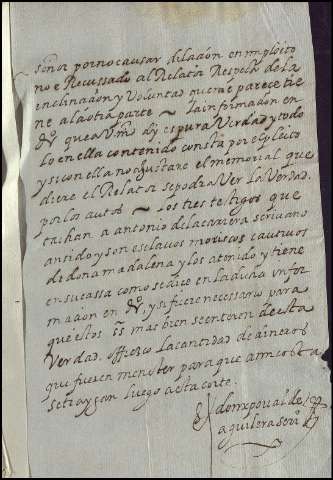 señor por no causar dilaçion en mi pleito
no e Recussado al Relator Respeto de la
enclinaçion y Voluntad que me parece tie
ne a la otra parte ~ la informaçion en
que a Vmd dy es pura Verdad y todo
lo en ella contenido consta por el pleito
y si con ella no ajustare el memorial que
diere el Relator se podra Ver la Verdad
por los autos ~ los tres testigos que
tachan a antonio de la carrera scrivano
an sido y son esclavos moriscos cautivos
de dona madalena y los a tenido y tiene
en su cassa como se dice en la dicha ynfor
maçion en y si fuere necessario para
que estos ss mas bien se enteren desta
Verdad. offrezco la cantidad de dineros
que fueren menester para que a mi costa
se traygan luego a esta corte.
don xpoual de
aguilera